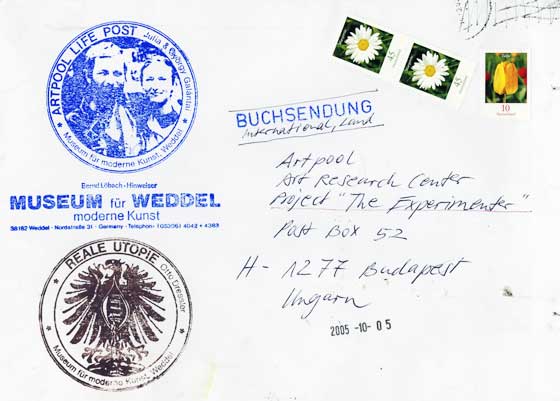 ARTPOOL LIFE POST Julia & György Galántai
Museum für moderne Kunst, Weddel
Bernd Löbach-Hinweiser
MUSEUM für WEDDEL
moderne Kunst
38162 Weddel · Nordstraße 31 · Germany · Telephon- (05306) 4042 + 4383
REALE UTOPIE Otto Dressler
Museum für moderne Kunst, Weddel
45
45
10
BUCHSENDUNG
International, Land
Artpool
Art Research Center
Project "The Experimenter"
Post Box 52
H - 1277 Budapest
Ungarn
2005 -10- 05